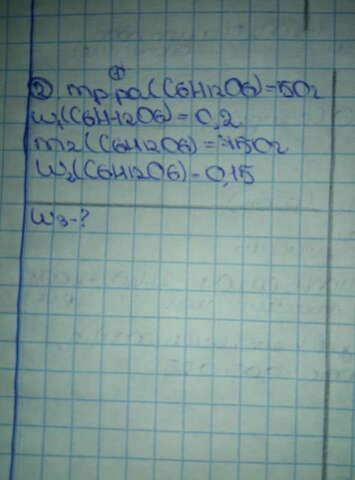 (1)
② mр.ра(C6H12O6)=50г
w₁(C6H12O6)=0,2
m2(C6H12O6)=150г
w₂(C6H12O6)-0,15
w3-?